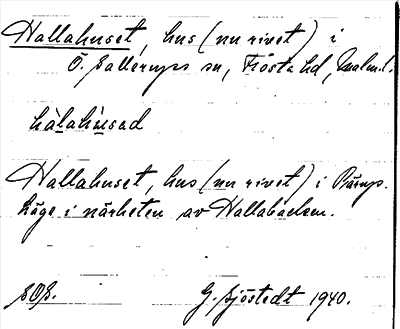 Hallahuset, hus (nu rivet) i
Ö. Sallerups sn, Frosta hd, Malm. l.
hàlahùsad
Hallahuset, hus (nu rivet) i
Läge i närheten av Hallabacken.
SOS.
G. Sjöstedt 1940.